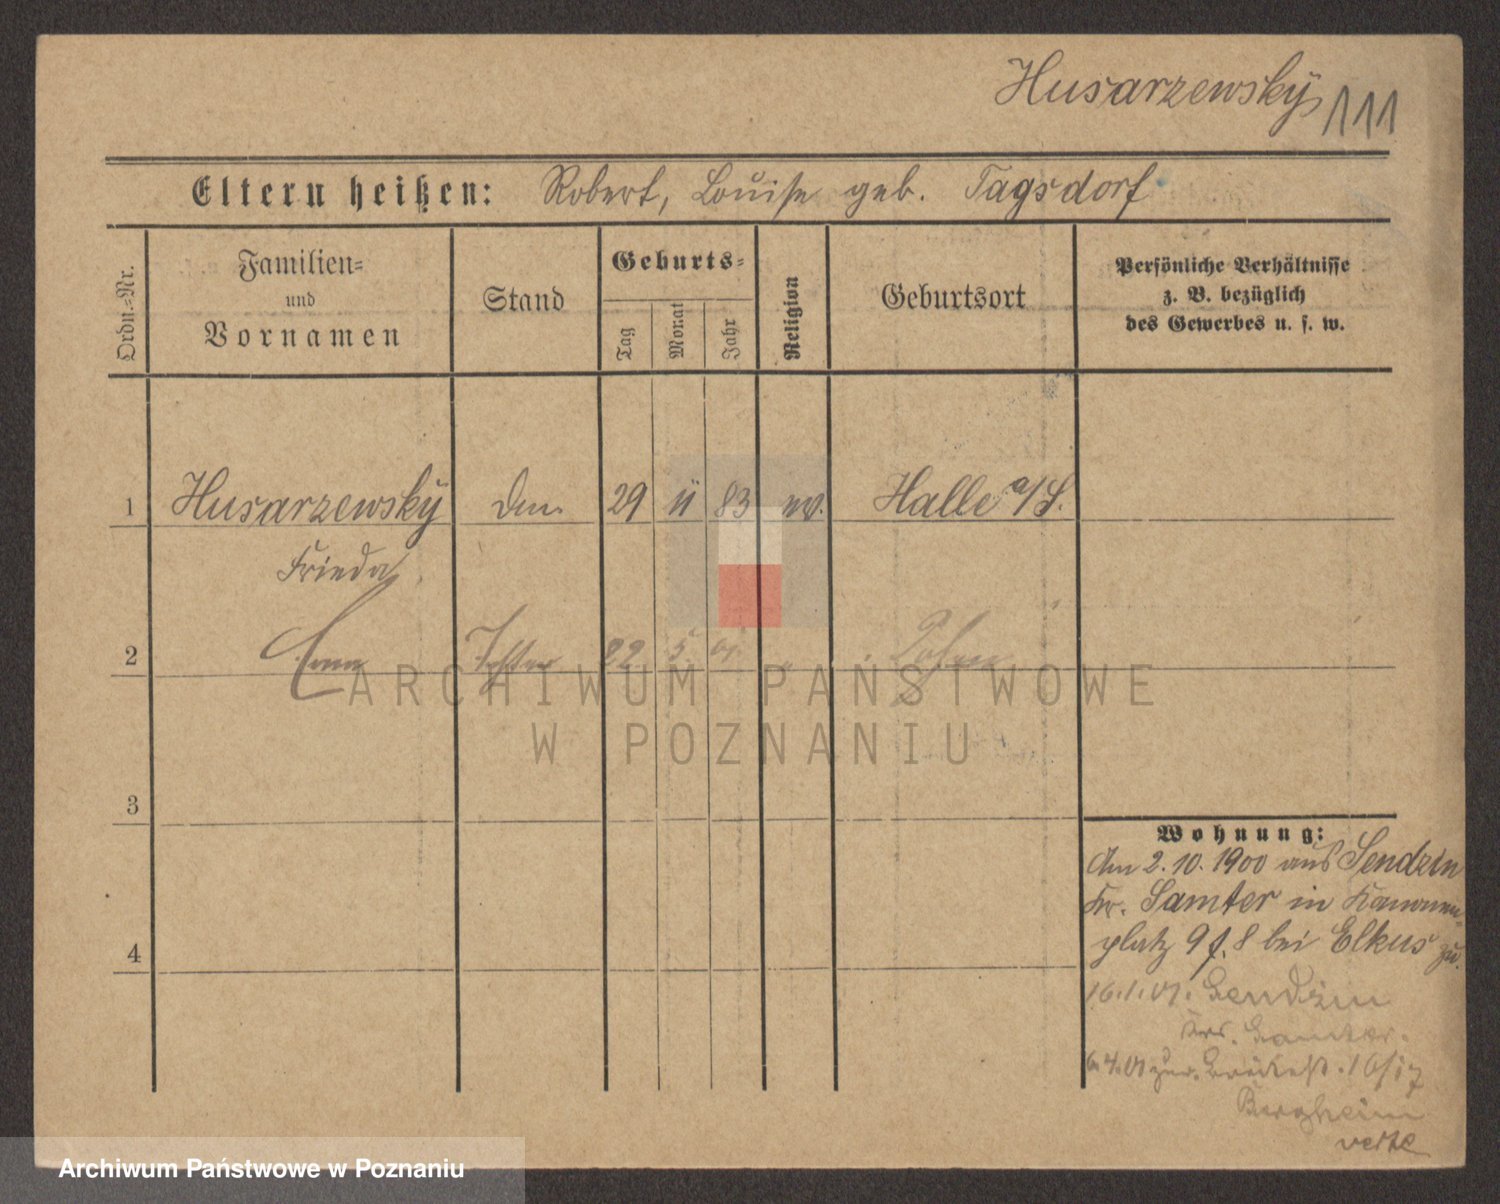 Husarzewsky 111
Eltern heißen: Robert, Louise geb. Tagsdorf
Ordn.-Nr.
Familien-
und
Vornamen
Stand
Geburts-
Tag
Monat
Jahr
Religion
Geburtsort
Persönliche Verhältnisse
z. B. bezüglich
des Gewerbes u. s. w.
1 Husarzewsky 29 11 83 Halle a/S.
Frieda
2 Tochter 22 5
ARCHIWUM PAŃSTWOWE
W POZNANIU
3
4
Wohnung:
Am 2. 10. 1900 aus Sendzin
Kr. Samter in Kanonen-
platz 9 f. 8 bei Elkus zu.
16.1.01. Sendzin
Krs. Samter.
6.4.01 16/17
Bergheim
verte
Archiwum Państwowe w Poznaniu